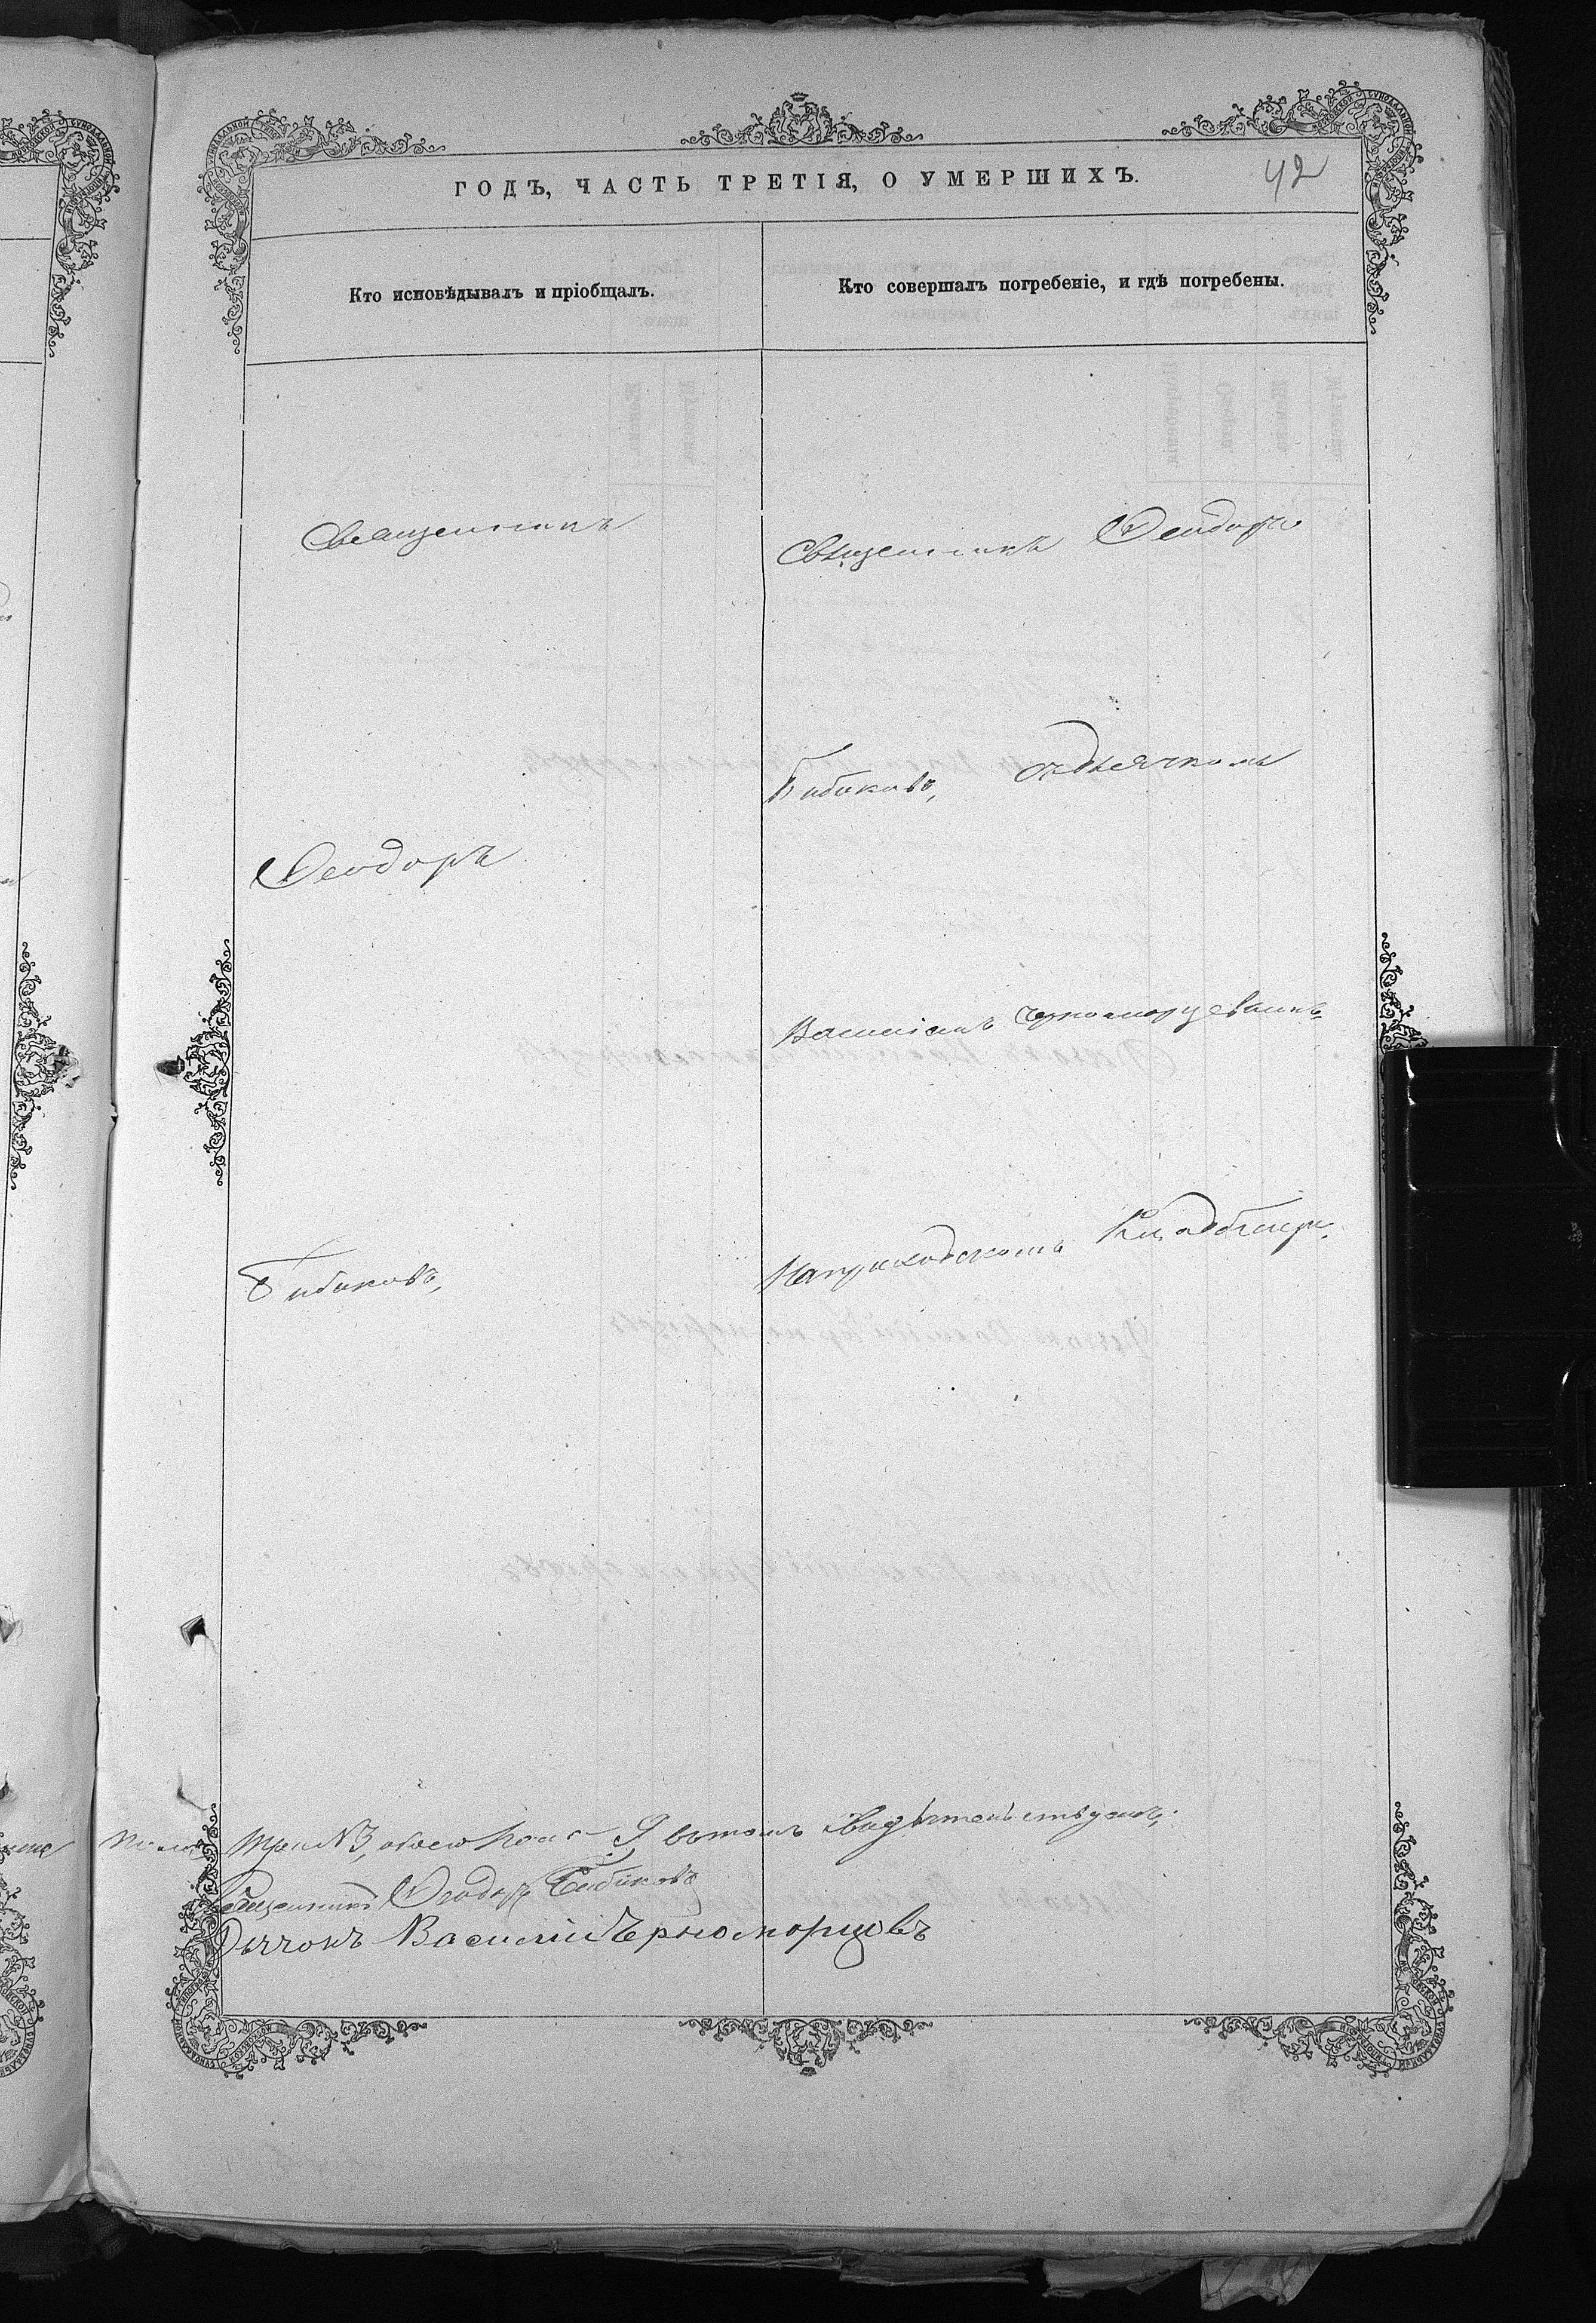 ГОДЪ, ЧАСТЬ ТРЕТІЯ, О УМЕРШИХЪ.
42
Кто исповѣдывалъ и пріобщалъ.
Кто совершалъ погребеніе, и гдѣ погребены.
Священникъ
Ѳеодоръ
Бибиковъ,
Священникъ Ѳеодоръ
Бибиковъ, съдьячкомъ
Василіемъ Черноморцевымъ
Наприходскомъ Кладбищѣ.
обоего пола 9 вътомъ Свидѣтельствуемъ;
Священникъ Ѳеодоръ Бибиковъ
Дьячокъ Василій Черноморцовъ